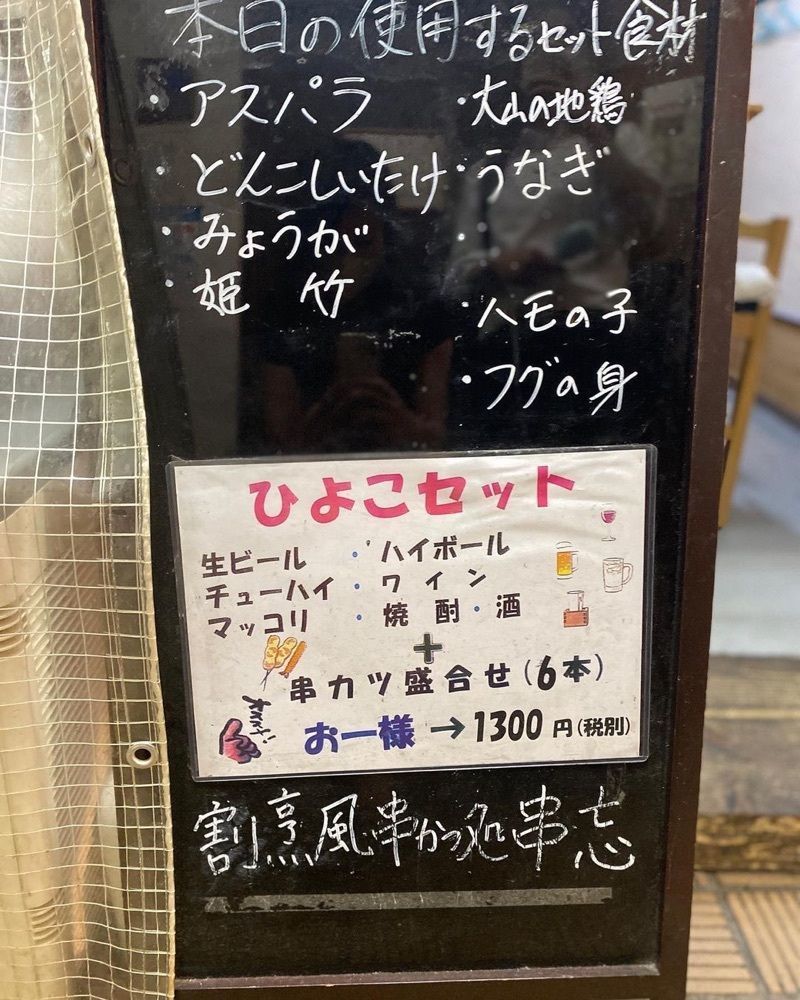 本日の使用するセット食材
・アスパラ ・大山の地鶏
・どんこしいたけ ・うなぎ
・みょうが ・
・姫竹
・ハモの子
・フグの身
ひよこセット
生ビール ・ハイボール
チューハイ ・ワイン
マッコリ ・焼酎・酒
+
串カツ盛合せ(6本)
オススメ!
お一様→1300円(税別)
割烹風串かつ処串忘